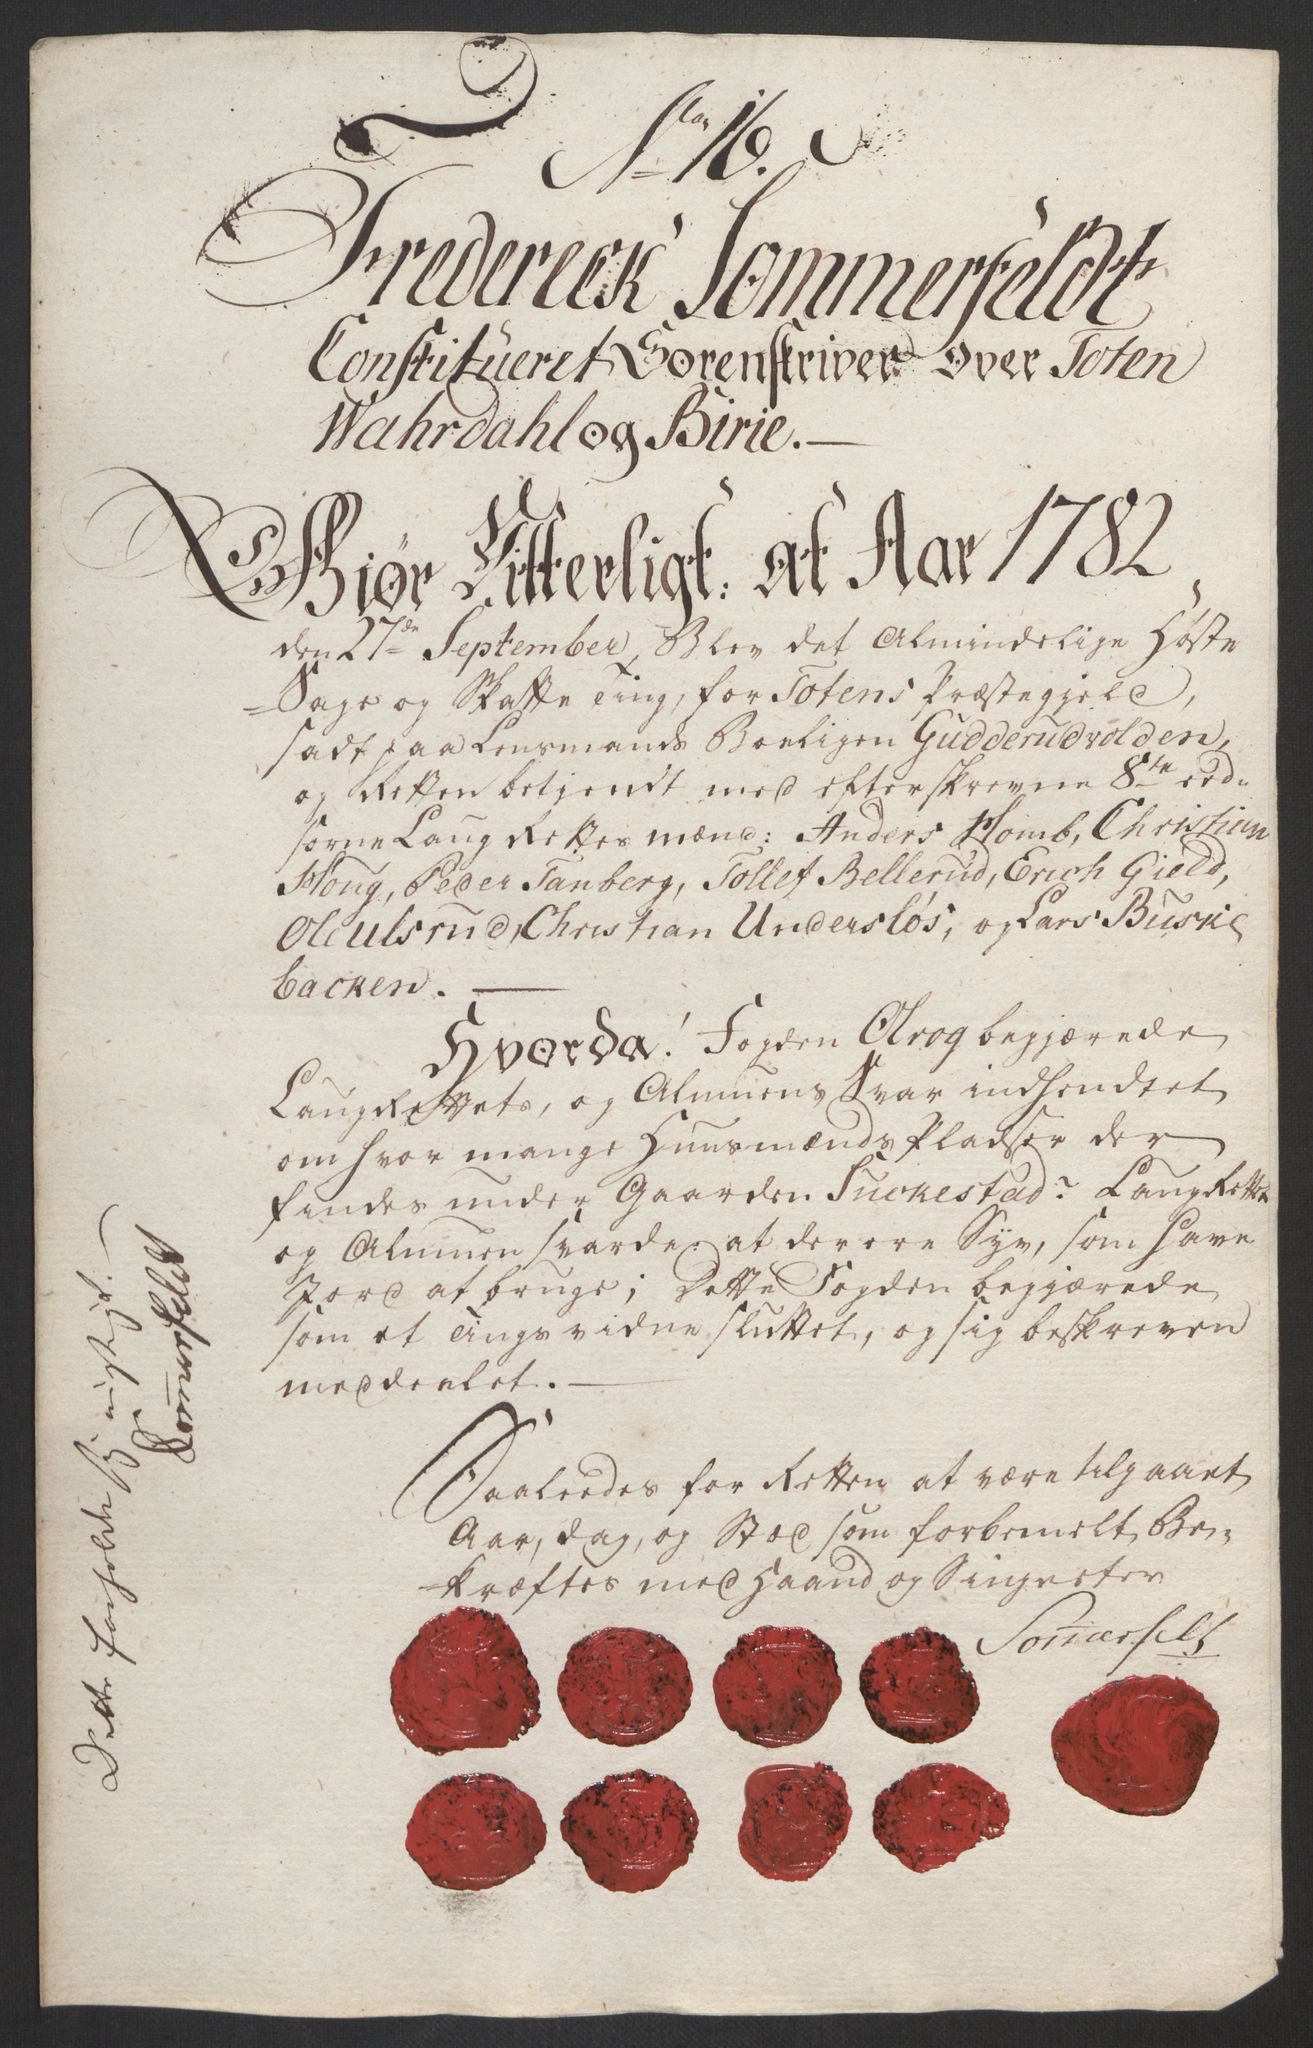 No 16.
Fredereck Sommerfeldt
Constitueret Sorenskriver over Toten
Wahrdahl og Birie. —
Giør Vitterligt: at Aar 1782
den 27de September, Blev det Almindelige Høste
Sage og Skatte Ting, for Totens Præstegjeld,
sadt paa Lensmands Boeligen Gudderudvolden,
og Retten betjendt med efterskrevne 8te eed-
sorne LaugRettesmænd: Anders Homb, Christian
Houg, Peder Tanberg, Tollef Bellerud, Erich Gield,
Ole ulsrud, Christian Underslös, og Lars Buskе
backen. —
Hvorda! Fogden Arog begjærede
LaugRettets, og Almuens Svar indhendtet
om hvor mange Huusmænds Pladser der
findes under Gaarden Suckestad? LaugRettet
og Almuen svarde: at der ere Syv, som have
Jord at bruge; Dette Fogden begjærede
som et Tingsvidne sluttet, og sig beskreven
meddeelet. —
Saaleedes for Retten at være tilgaaet
Aar, dag, og Stæd som forbemelt, Be-
kræftes med Haand og Singneter
Somerfelt
Dette forholder sig rigtigt. —
Somerfeldt